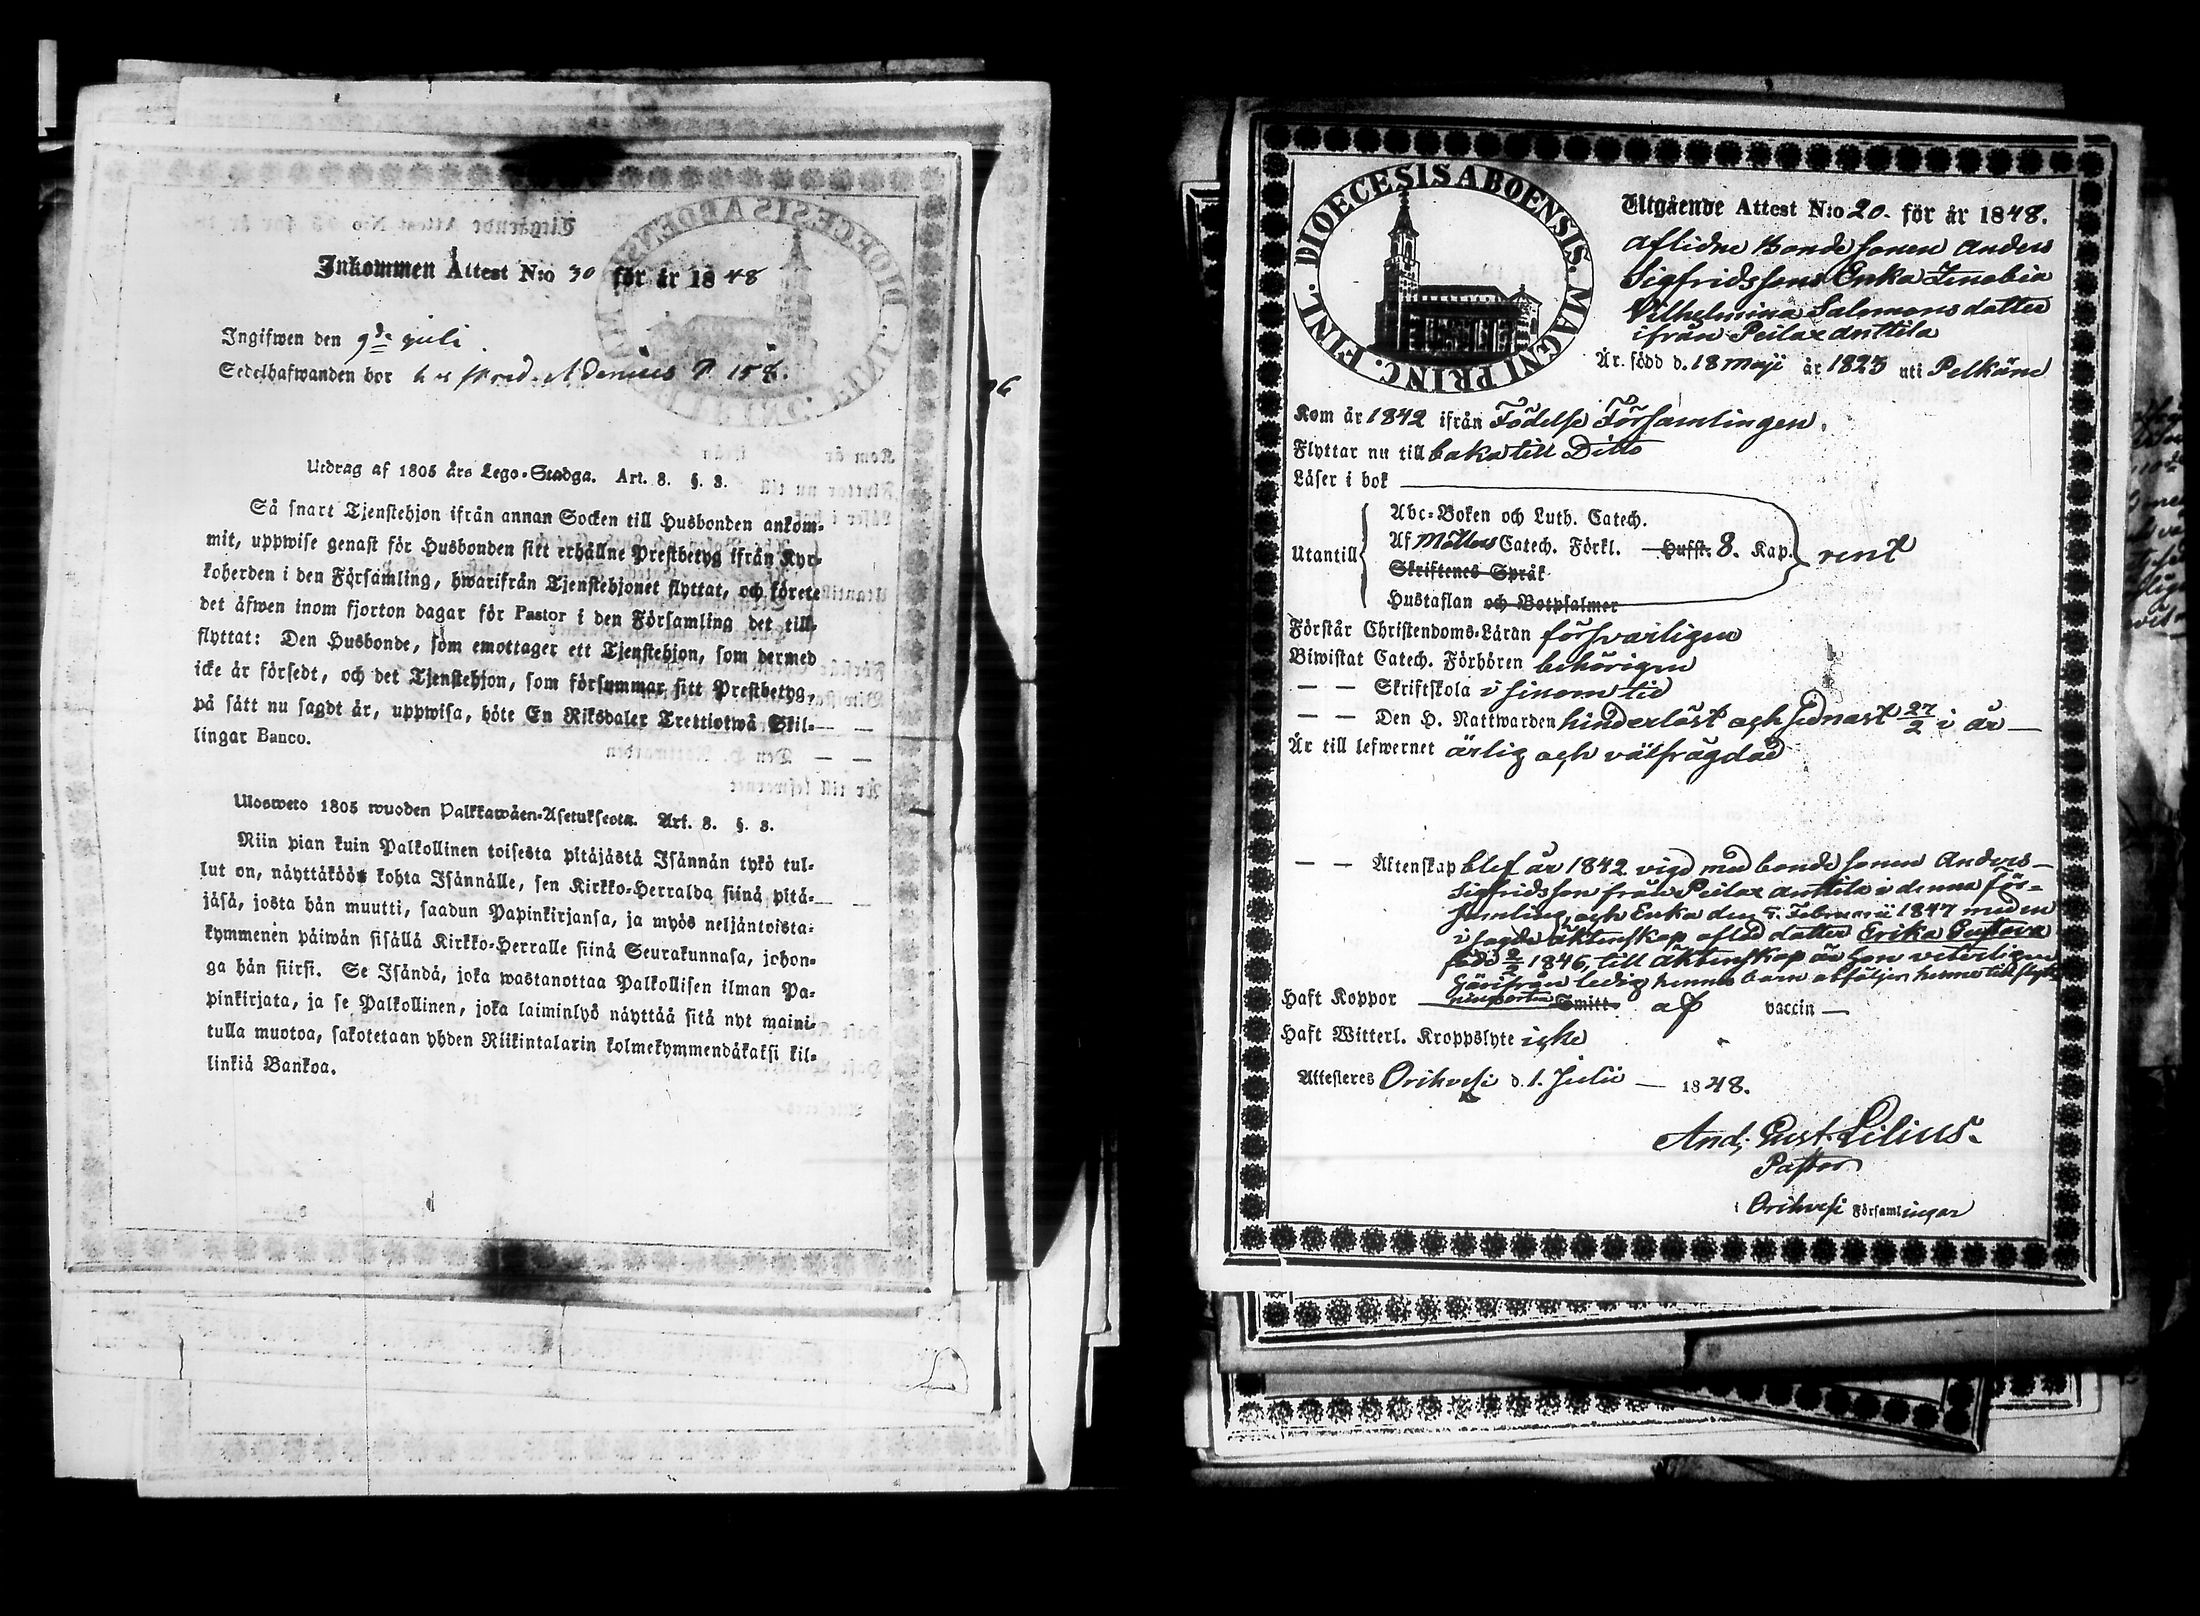 Inkommen Attest N:o 30 för år 1848
Ingifwen den 9de juli
Sedelhafwanden bor
Utdrag af 1805 års Lego-Stadga. Art. 8. §. 3.
Så snart Tjenstehjon ifrån annan Socken till Husbonden ankom-
mit, uppwise genast för Husbonden sitt erhållne Prestbetyg ifrån Kyr-
koherden i den Församling, hwarifrån Tjenstehjonet flyttat, och förete
det äfwen inom fjorton dagar för Pastor i den Församling det till-
flyttat: Den Husbonde, som emottager ett Tjenstehjon, som dermed
icke är försedt, och det Tjenstehjon, som försummar sitt Prestbetyg,
på sätt nu sagdt är, uppwisa, böte En Riksdaler Trettiotwå Skil-
lingar Banco.
Ulosweto 1805 wuoden Palkkawäen-Asetuksesta. Art. 8. §. 3.
Niin pian kuin Palkollinen toisesta pitäjästä Isännän tykö tul-
lut on, näyttäköön kohta Isännälle, sen Kirkko-Herralda siinä pitä-
jäsä, josta hän muutti, saadun Papinkirjansa, ja myös neljäntoista-
kymmenen päiwän sisällä Kirkko-Herralle siinä Seurakunnasa, johon-
ga hän siirsi. Se Isändä, joka wastanottaa Palkollisen ilman Pa-
pinkirjata, ja se Palkollinen, joka laiminlyö näyttää sitä nyt maini-
tulla muotoa, sakotetaan yhden Riikintalarin kolmekymmendäkaksi kil-
linkiä Bankoa.
DIOECESIS ABOENSIS. MAGNI PRINC. FINL.
Utgående Attest N:o 20. för år 1848.
Aflidne Bondesonen Anders
Sigfridssons Enka Zenobia
Vilhelmina Salomonsdotter
ifrån Peilax Anttila
Är född d. 18 Maji år 1823 uti Pelkäne
Kom år 1842 ifrån Födelse Församlingen.
Flyttar nu till baka till Ditto
Läser i bok
Abc-Boken och Luth. Catech.
Utantill Af Möllers Catech. Förkl. Hufst. 8. Kap. rent
Skriftenes Språk
Hustaflan och Botpsalmer
Förstår Christendoms-Läran försvarligen
Biwistat Catech. Förhören behörigen
— — Skriftskola i sinom tid
— — Den H. Nattwarden hinderlöst och sednast 27/2 i år —
Är till lefwernet ärlig och välfrägdad
— — Äktenskap blef år 1842 vigd med bondesonen Anders
Sigfridsson från Peilax Anttila i denna för-
samling, och Enka den 5. Februarii 1847 med en
i sagde äktenskap aflad dotter Erika Gustava
född 2/2 1846, till Äktenskap är hon veterligen
härifrån ledig, hennes barn åtföljer henne
Haft Koppor Smitt af vaccin —
Haft Witterl. Kroppslyte icke
Attesteres Orihvesi d. 1. Julii — 1848.
And. Gust. Lilius.
Pastor
i Orihvesi Församlingar